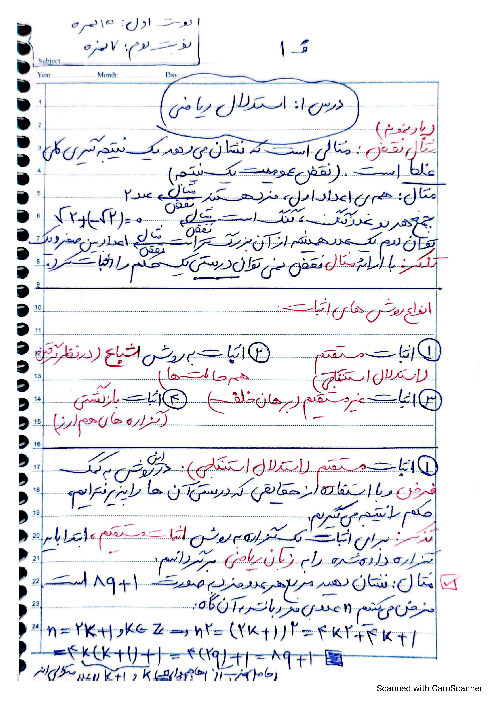 نوبت اول: ۱۳ نمره
نوبت دوم: ۷ نمره
ف ۱
Subject
Year Month Day
درس ۱: استدلال ریاضی
(یادبگیریم)
مثال نقض: مثالی است که نشان می دهد یک نتیجه گیری کلی
غلط است. (نقض عمومیت یک نتیجه)
مثال: همه ی اعداد اول، فردهستند مثال نقض عدد ۲
جمع هر دو عدد گنگ، گنگ است مثال نقض √۲+(-√۲)=۰
توان دوم یک عدد همیشه از آن بزرگتر است مثال نقض اعداد بین صفر و یک
تذکر: با ارائه مثال نقض نمی توان درستی یک حکم را اثبات کرد.
انواع روش های اثبات:
① اثبات مستقیم ② اثبات به روش اشباع (درنظر گرفتن
(استدلال استنتاجی) همه حالت ها)
③ اثبات غیر مستقیم (برهان خلف) ④ اثبات بازگشتی
(گزاره های هم ارز)
① اثبات مستقیم (استدلال استنتاجی): در این روش به کمک
فرض و با استفاده از حقایقی که درستی آن ها را پذیرفته ایم
حکم را نتیجه می گیریم.
تذکر: برای اثبات یک گزاره به روش اثبات مستقیم، ابتدا باید
گزاره داده شده را به زبان ریاضی برگردانیم.
مثال: نشان دهید مربع هر عدد فرد به صورت ۸q+۱ است
فرض می کنیم n عددی فرد باشد، آن گاه:
n=۲k+۱, k∈Z → n²=(۲k+۱)²=۴k²+۴k+۱
=۴k(k+۱)+۱=۴(۲q)+۱=۸q+۱
Scanned with CamScanner